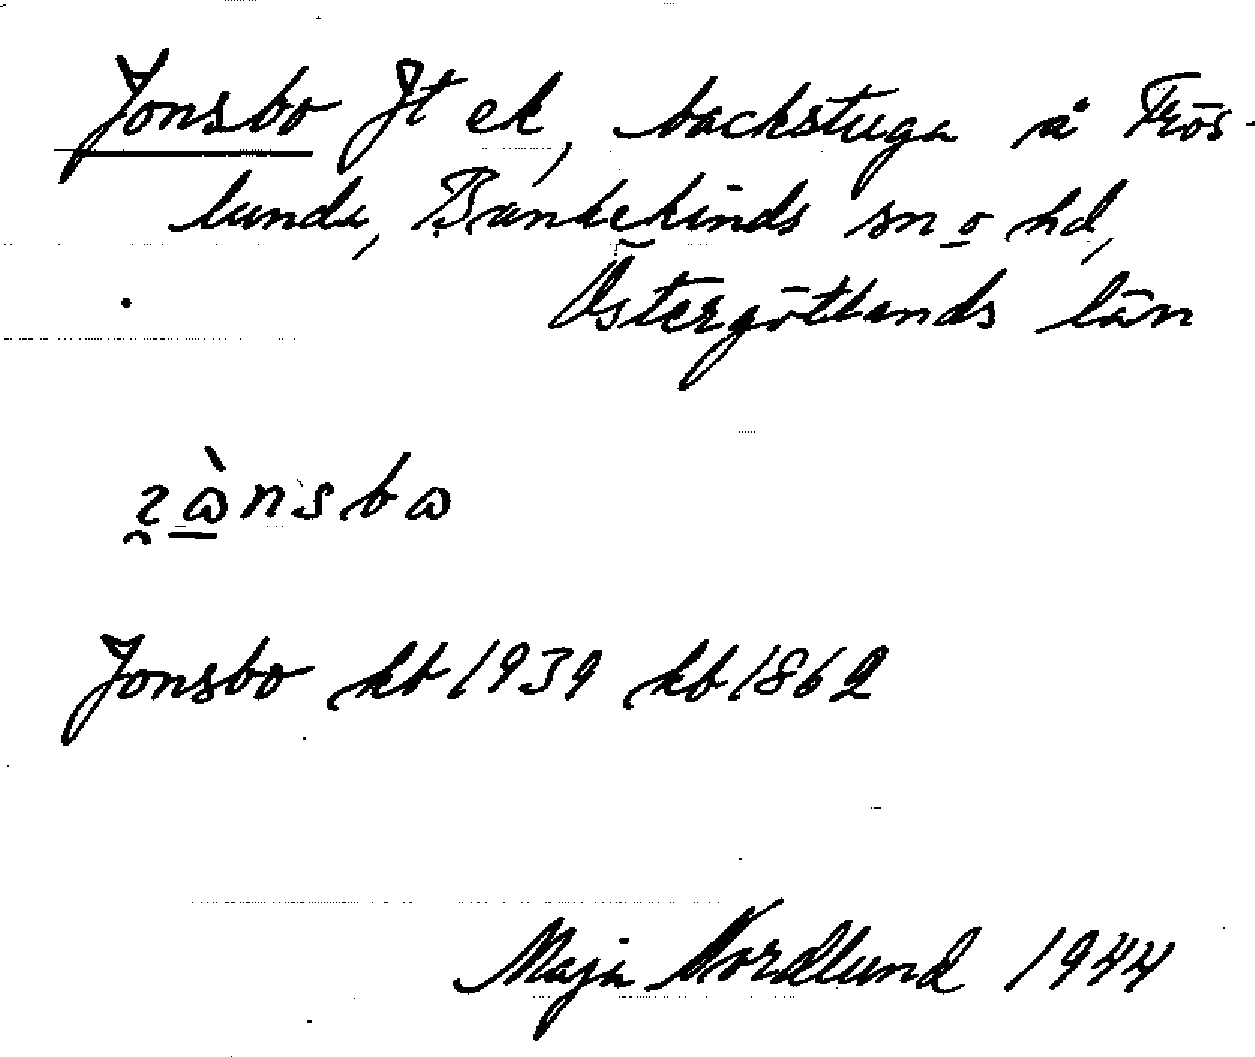 Jonsbo Jt ek, backstuga å Frös-
lunda, Bankekinds sn o hd,
Östergötlands län
Jonsbo kb 1939 hb 1862
Maja Nordlund 1944